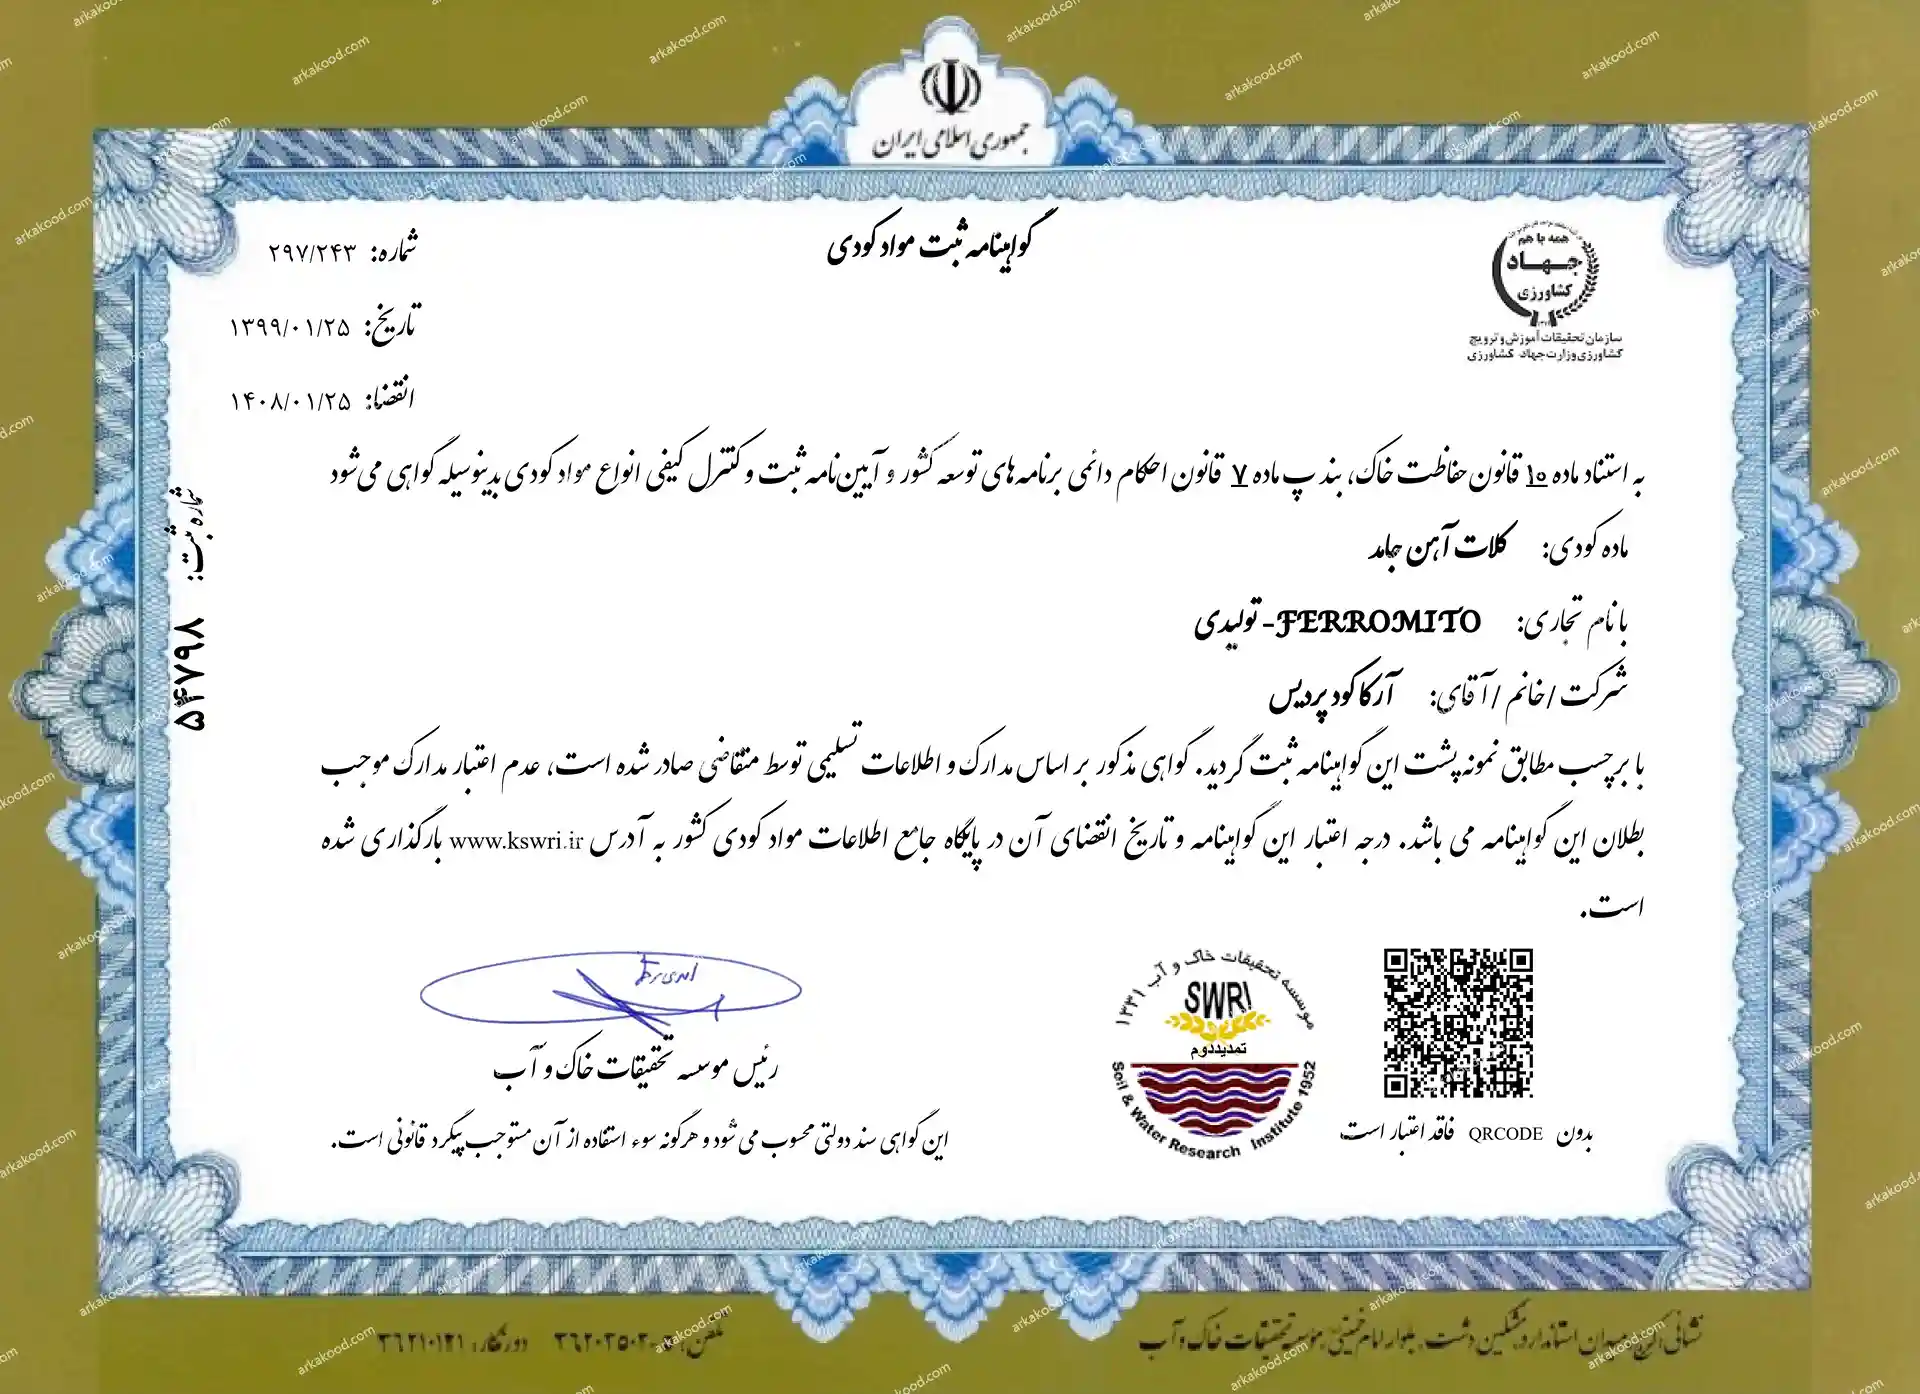 جمهوری اسلامی ایران
گواهینامه ثبت مواد کودی
همه با هم
جهاد
کشاورزی
سازمان تحقیقات آموزش و ترویج
کشاورزی وزارت جهاد کشاورزی
شماره: ۲۹۷/۲۴۳
تاریخ: ۱۳۹۹/۰۱/۲۵
انقضا: ۱۴۰۸/۰۱/۲۵
شماره ثبت: ۵۴۷۹۸
به استناد ماده ۱۰ قانون حفاظت خاک، بند پ ماده ۷ قانون احکام دائمی برنامه‌های توسعه کشور و آیین‌نامه ثبت و کنترل کیفی انواع مواد کودی بدینوسیله گواهی می‌شود
ماده کودی: کلات آهن جامد
با نام تجاری: FERROMITO- تولیدی
شرکت / خانم / آقای: آرکا کود پردیس
با برچسب مطابق نمونه پشت این گواهینامه ثبت گردید. گواهی مذکور بر اساس مدارک و اطلاعات تسلیمی توسط متقاضی صادر شده است، عدم اعتبار مدارک موجب
بطلان این گواهینامه می باشد. درجه اعتبار این گواهینامه و تاریخ انقضای آن در پایگاه جامع اطلاعات مواد کودی کشور به آدرس www.kswri.ir بارگذاری شده
است.
موسسه تحقیقات خاک و آب ۱۳۳۱
SWRI
تمدیددوم
Soil & Water Research Institute 1952
بدون QRCODE فاقد اعتبار است
رئیس موسسه تحقیقات خاک و آب
این گواهی سند دولتی محسوب می شود و هرگونه سوء استفاده از آن مستوجب پیگرد قانونی است.
نشانی: کرج، میدان استاندارد، مشکین دشت، بلوار امام خمینی، موسسه تحقیقات خاک و آب
دورنگار: ۳۶۲۱۰۱۲۱
arkakood.com